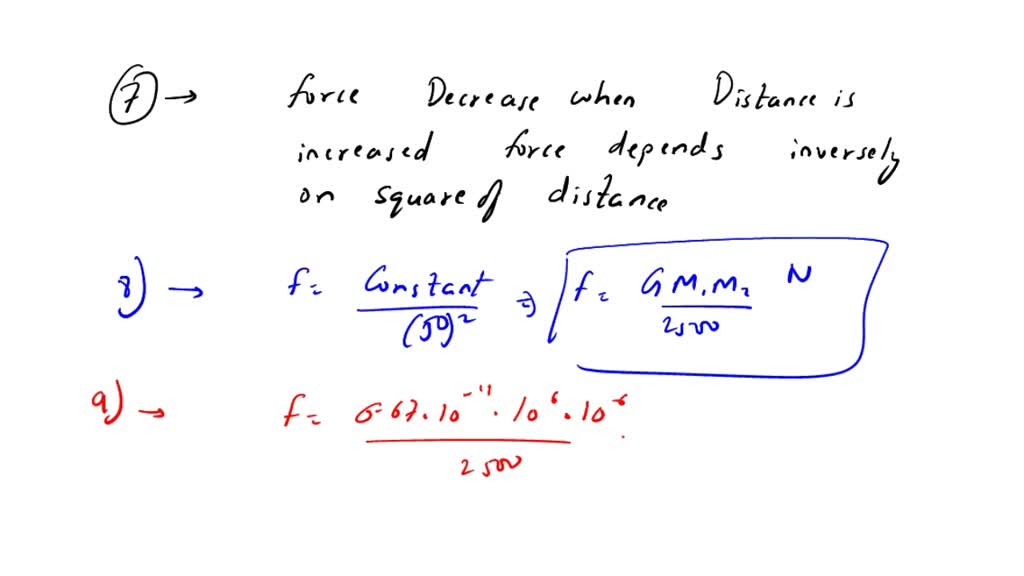 7 → force Decrease when Distance is
increased force depends inversely
on square of distance
8) → f = Constant / (50)² ⇒ f = G M₁ M₂ / 2500 N
9) → f = 6.67 · 10⁻¹¹ · 10⁶ · 10⁻⁶ / 2500